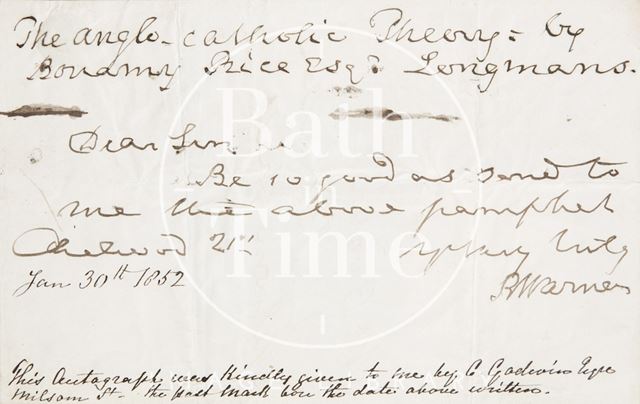 The Anglo-catholic Theory = by
Bonamy Price Esqr. Longmans.
Dear Sir
Be so good as send to
me the above pamphlet
Chelwood 21st truly
Jan 30th 1852 R Warner
This Autograph was Kindly given to me by C. Godwin
Milsom St. the post mark bore the date above written.
Bath in Time